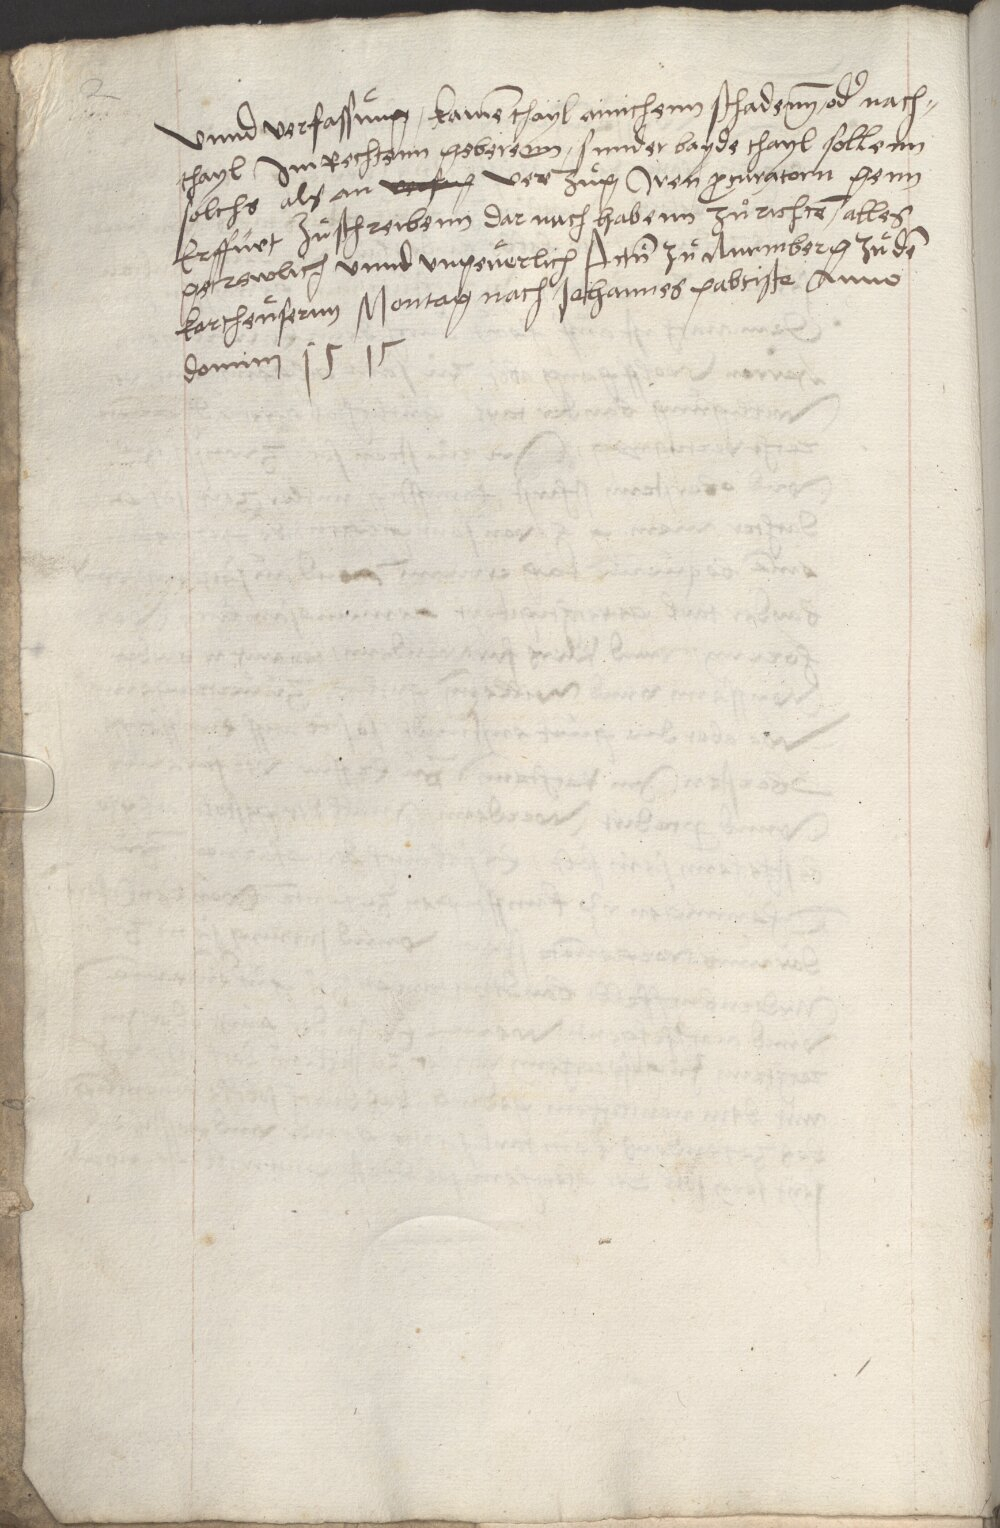 2
vnnd verfassung / kainē thayl ainichenn schadenn / od nach-
thayl Im Rechtenn geberenn / sunder bayde thayl sollenn
solchs als an verzug Iren procuratorn genn
Erffurt zu schreibenn dar nach habenn zu richtē / alles
getrewlich vnnd vngeuerlich Actū zu Nurmberg zu dē
kartheusernn Montag nach Johannes pabtiste Anno
domini 1515